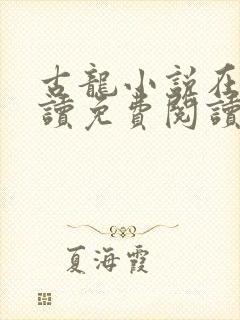 古龍小說在
讀免費閱讀
夏海霞